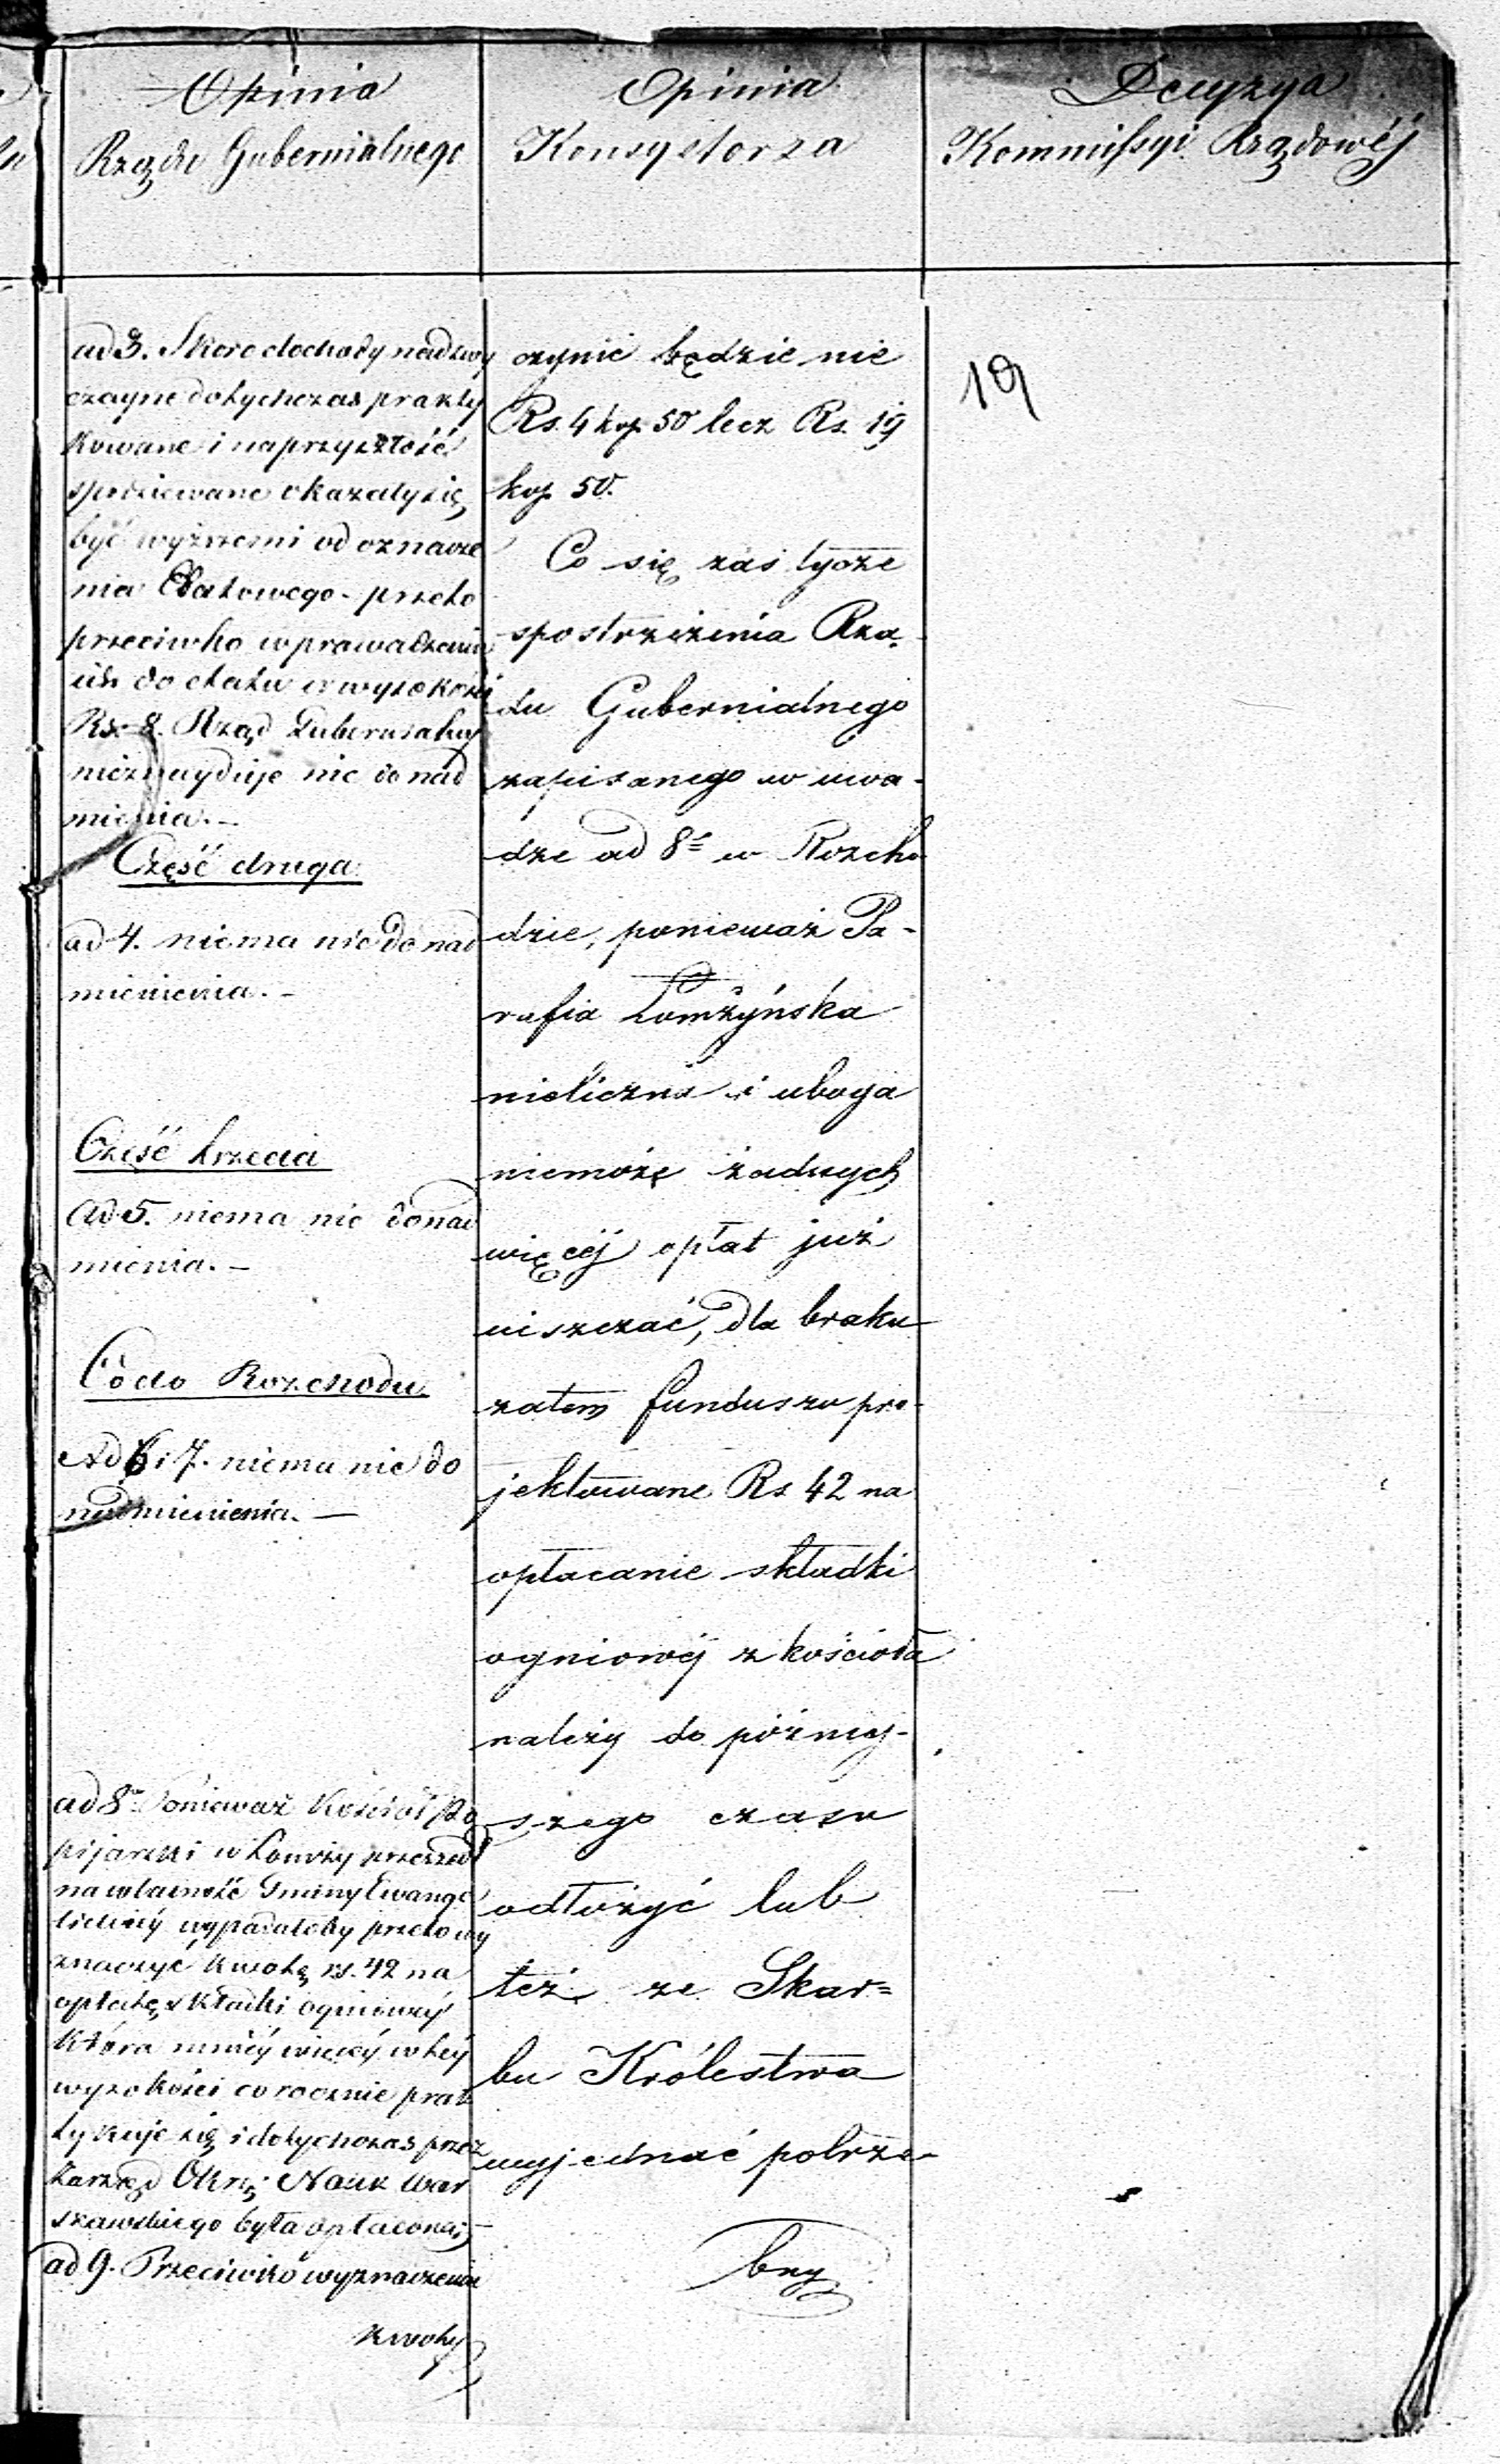 Opinia
Rządu Gubernialnego
ad 3. Skoro dochody nadzwy
czayne dotychczas prakty
kowane i naprzyszłość
spodziewane okazały się
być wyższemi od oznacze
nia Etatowego - przeto
przeciwko wprowadzeniu
ich do etatu w wysokości
Rs. 8. Rząd Gubernialny
nieznayduje nic do nad
mienia. -
Część druga
ad 4. niema nic do nad
mienienia. -
Część trzecia
Ad 5. niema nic do nad
mienia. -
Co do Rozchodu
Ad 6 i 7. niema nic do
nadmienienia. -
ad 8o Ponieważ Kościół Po
pijarski w Łomży przeszedł
na własność Gminy Ewange
lickiéj wypadałoby przeto wy
znaczyć kwotę rs. 42 na
opłatę składki ogniowéj
która mniéj więcéj w téj
wysokości corocznie prak
tykuje się i dotychczas przez
Zarząd Okrę: Nauk War
szawskiego była opłaconą;
ad 9. Przeciwko wyznaczeniu
kwoty
Opinia
Konsystorza
czynić będzie nie
Rs. 4 kop. 50 lecz Rs. 19
kop 50.
Co się zaś tycze
spostrzeżenia Rzą-
du Gubernialnego
zapisanego w uwa-
dze ad 8o w Rozcho
dzie, ponieważ Pa-
rafia Łomżyńska
nieliczna i uboga
niemoże żadnych
więcéj opłat już
uiszczać, dla braku
zatem funduszu pro-
jektowane Rs 42 na
opłacanie składki
ogniowéj z kościoła
należy do późniey-
szego czasu
odłożyć lub
też ze Skar=
bu Królestwa
wyjednać potrze-
bny
Decyzya
Kommissyi Rządowéj
19